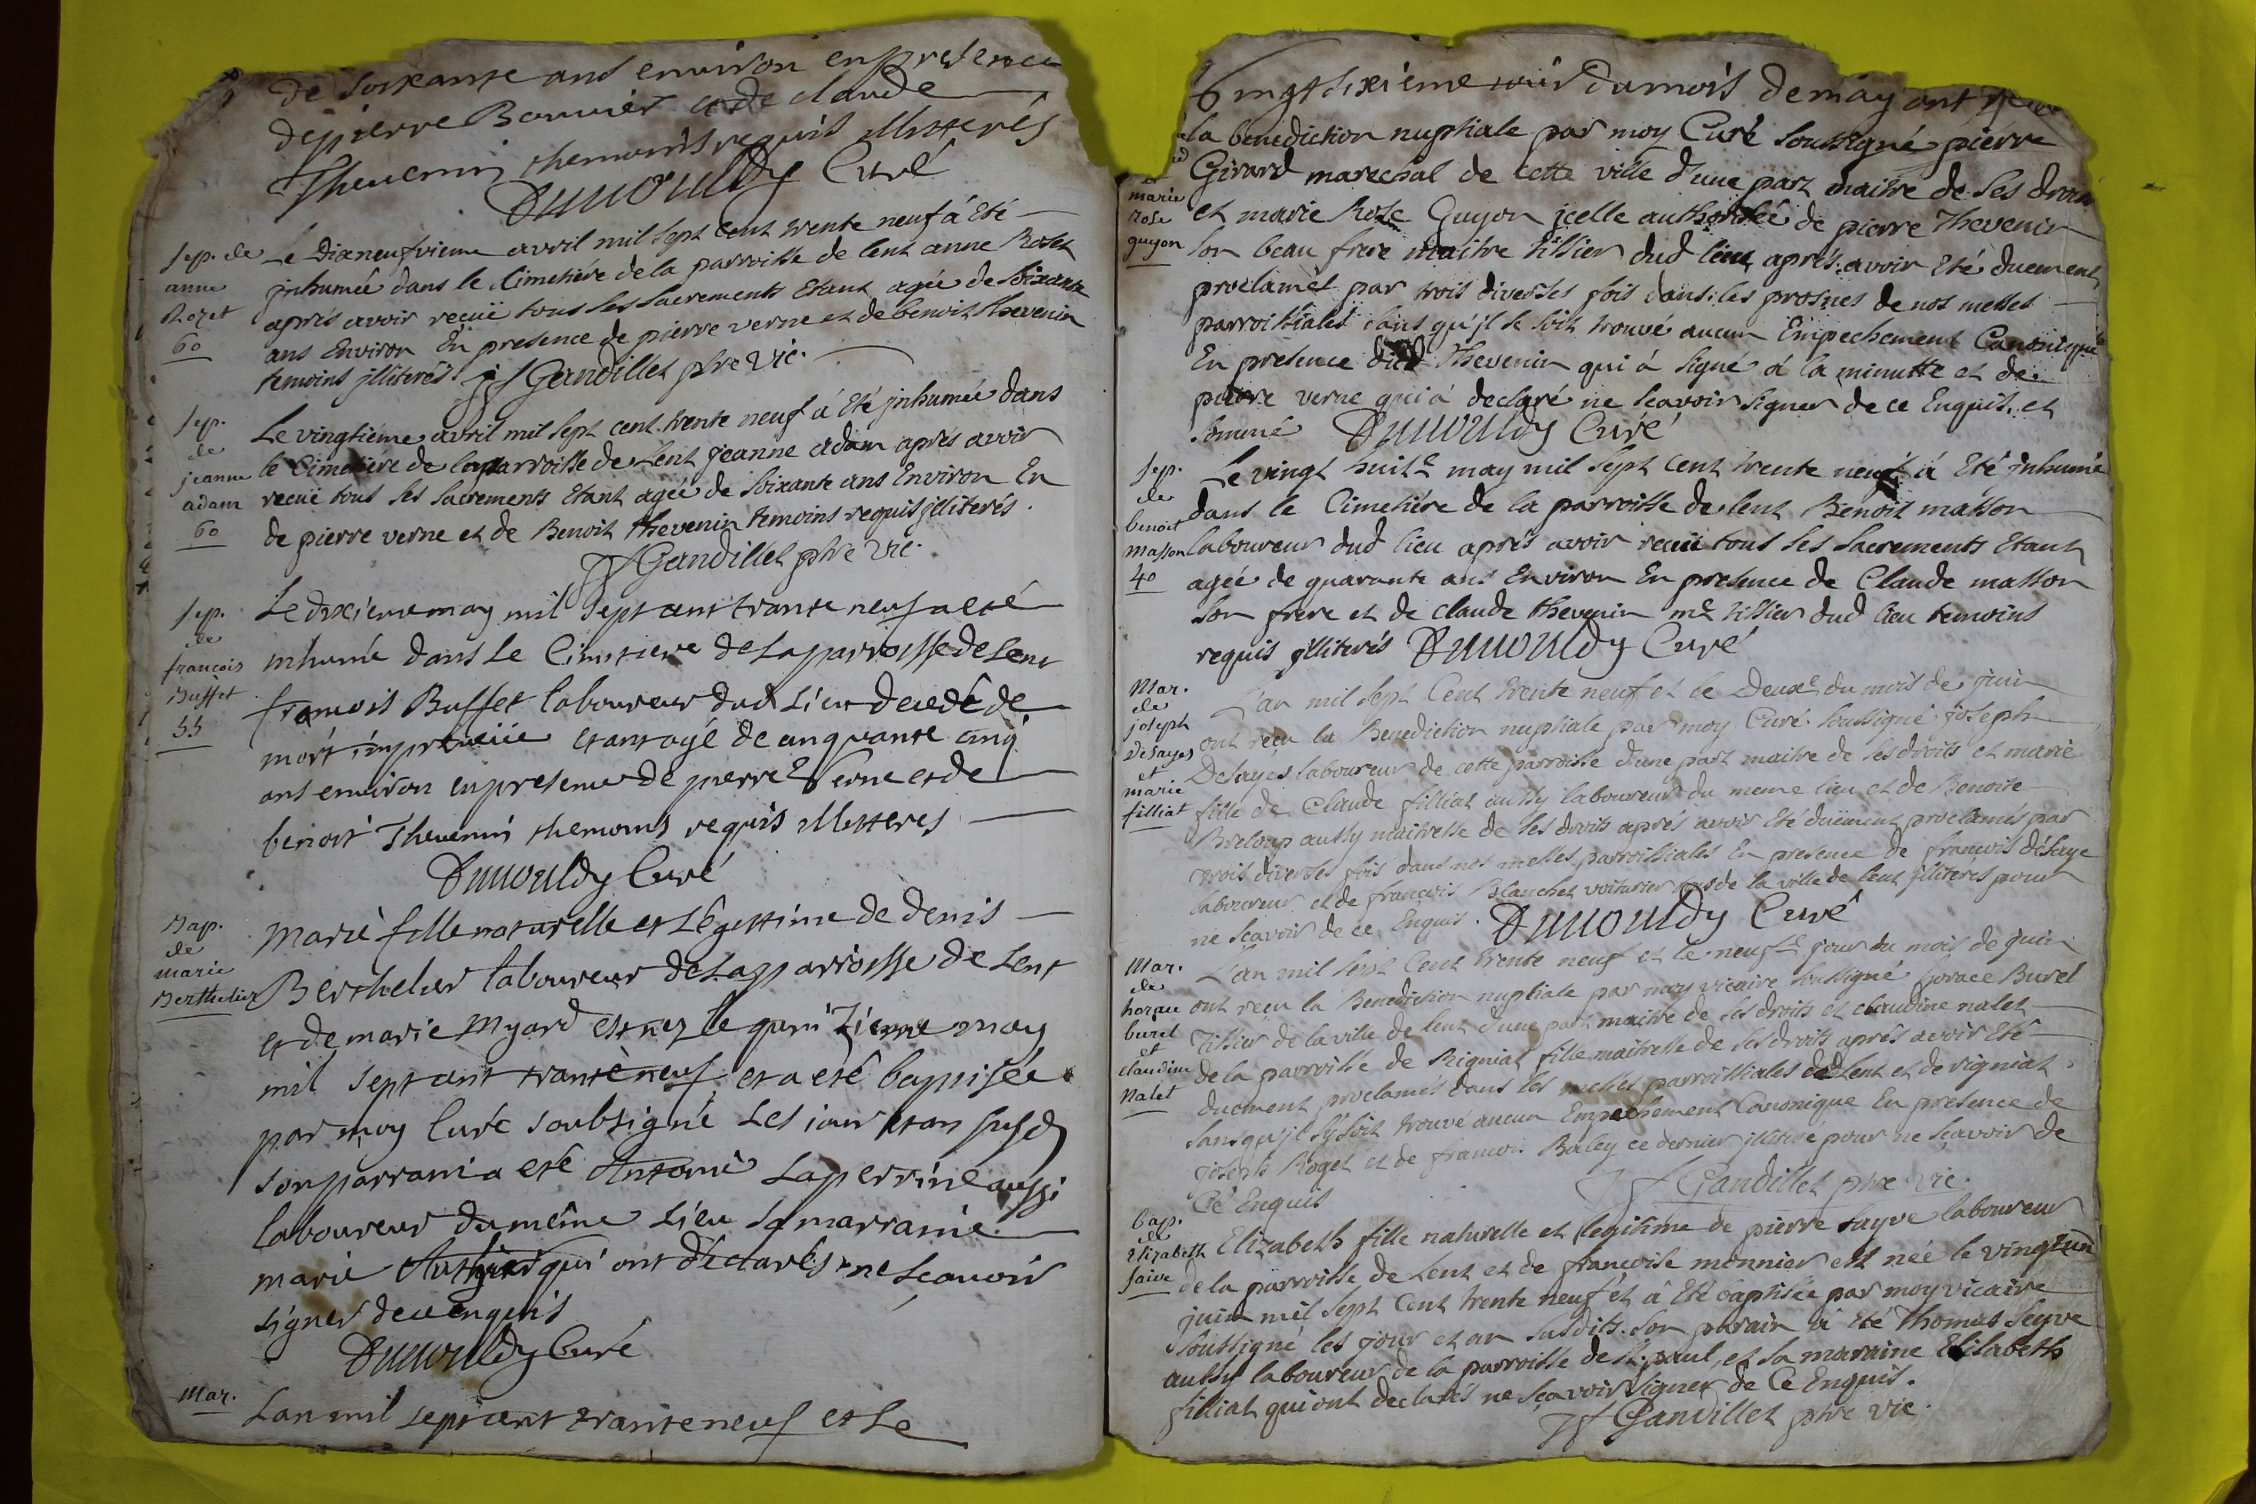 de soixante ans environ en presence
de pierre Bouvier et de claude
Thevenin themoins requis illitteres
Dumouldy Curé
sep. de
anne
Rozet
60
Le Dixneufvieme avril mil sept cent trente neuf á eté
jnhumée dans le Cimetiére de la parroisse de lent anne Rozet
aprés avoir reçuë tous ses sacrements Etant agée de soixante
ans Environ En presence de pierre verne et de benoit thevenin
temoins jlliterés Gandillet ptre vic.
sep.
de
jeanne
adam
60
Le vingtiéme avril mil sept cent trente neuf á été jnhumée dans
le Cimetiére de la parroisse de Lent jeanne adam aprés avoir
reçuë tous ses sacrements Etant agée de soixante ans Environ En
de pierre verne et de Benoit thevenin temoins requis jlliterés.
Gandillet ptre vic.
sep.
de
françois
Buffet
55
Le dixieme may mil sept cent trante neuf a eté
inhumé dans Le Cimetiere de La parroisse de Lent
francois Buffet laboureur dud Lieu decedé de
mort impreveüe etant agé de cinquante cinq
ans environ en presence de pierre Verne et de
benoit Thevenin themoins requis illitteres
Dumouldy Curé
Bap.
de
marie
Berthelier
Marie fille naturelle et Légettime de denis
Berthelier laboureur de La parroisse de Lent
et de marie Myard est nez le quinzieme may
mil sept cent trante neuf et a eté baptisée
par moy Curé soubsigné Les jour et an susd
son parrain a eté Antoine Laperrine aussi
laboureur du même Lieu sa marraine
marie qui ont déclarés ne scavoir
signer de ce enquis
Dumouldy Curé
Mar.
L'an mil sept cent trante neuf et Le
marie
rose
guyon
Vingt sixieme jour du mois de may ont reçu
la benediction nuptiale par moy Curé soussigné pierre
Girard marechal de cette ville d'une part maitre de ses droits
et marie Rose Guyon jcelle authorisée de pierre Thevenin
son beau frere maitre tissier dud lieu aprés avoir eté duement
proclamét par trois diverses fois dans les prosnes de nos messes
parroissiales sans qu'jl se soit trouvé aucun Empechement Canonique
En presence dud thevenin qui á signé á la minutte et de
pierre verne qui á declaré ne scavoir signer de ce Enquis et
sommé Dumouldy Curé
sep.
de
benoit
masson
40
Le vingt huite may mil sept cent trente neuf á été jnhumé
dans le Cimetiére de la parroisse de lent Benoit masson
laboureur dud lieu aprés avoir reçuë tous ses sacrements Etant
agée de quarante ans Environ En presence de Claude masson
son frere et de claude thevenin me tissier dud lieu temoins
requis jlliterés Dumouldy Curé
Mar.
de
joseph
Desayes
et
marie
filliat
L'an mil sept Cent trente neuf et le Deuxe du mois de juin
ont reçu la Benediction nuptiale par moy Curé soussigné joseph
Desayes laboureur de cette parroisse d'une part maitre de ses droits et marie
fille de Claude filliat aussy laboureur du meme lieu et de Benoite
Breloup aussy maitresse de ses droits aprés avoir eté düement proclamés par
trois diverses fois dans nos messes parroissiales En presence de francois désaye
laboureur et de françois Blanchet voiturier de la ville de lent jlliteres pour
ne scavoir de ce Enquis. Dumouldy Curé
Mar.
de
horace
burel
et
claudine
Nalet
L'an mil sept Cent trente neuf et le neufe jour du mois de juin
ont reçu la Benediction nuptiale par moy vicaire soussigné horace Burel
Tissier de la ville de lent d'une part maitre de ses droits et claudine nalet
de la parroisse de Rigniat fille maitresse de ses droits aprés avoir eté
duement proclamés dans les messes parroissiales de lent et de rigniat
sans qu'jl sy soit trouvé aucun Empechement Canonique En presence de
joseph Roget et de francois Baley ce dernier jllitéré pour ne scavoir de
Ce Enquis
Gandillet ptre vic.
bap.
de
Elizabeth
saive
Elizabeth fille naturelle et legitime de pierre sayve laboureur
de la parroisse de Lent et de françoise monnier est née le vingt un
juin mil sept Cent trente neuf et á été baptisée par moy vicaire
soussigné les jour et an susdits. son parain á été thomas seyve
aussy laboureur de la parroisse de st. paul, et sa maraine Elisabeth
filliat qui ont declarés ne scavoir signer de Ce Enquis.
Gandillet ptre vic.